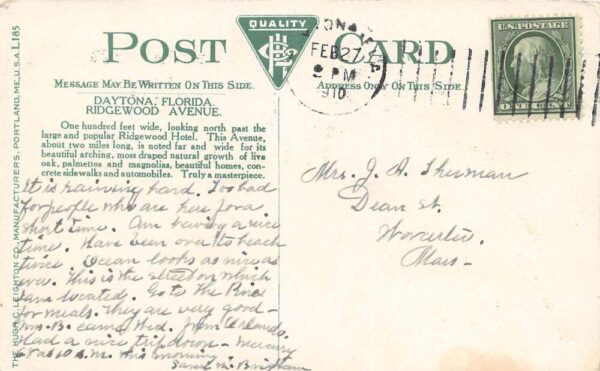 POST CARD
QUALITY
MESSAGE MAY BE WRITTEN ON THIS SIDE.
ADDRESS ONLY ON THIS SIDE.
DAYTONA, FLORIDA.
RIDGEWOOD AVENUE.
One hundred feet wide, looking north past the
large and popular Ridgewood Hotel. This Avenue,
about two miles long, is noted far and wide for its
beautiful arching, moss draped natural growth of live
oak, palmettos and magnolias, beautiful homes, con-
crete sidewalks and automobiles. Truly a masterpiece.
It is raining hard. Too bad
for people who are here for a
short time. Am having a nice
time. Have been over to beach
twice. Ocean looks as nice as
ever. This is the street on which
I am located. Go to The Pines
for meals. They are very good-
Mrs. B. came Wed. from
Had a nice trip down - Mercury
at 10 A.M. this morning
Sarah M. Brigham
FEB 27
2 PM
1910
U.S. POSTAGE
ONE CENT
Mrs. J. A. Sherman
Dean St.
Worcester,
Mass-
THE HUGH C. LEIGHTON CO., MANUFACTURERS, PORTLAND, ME., U.S.A. L185